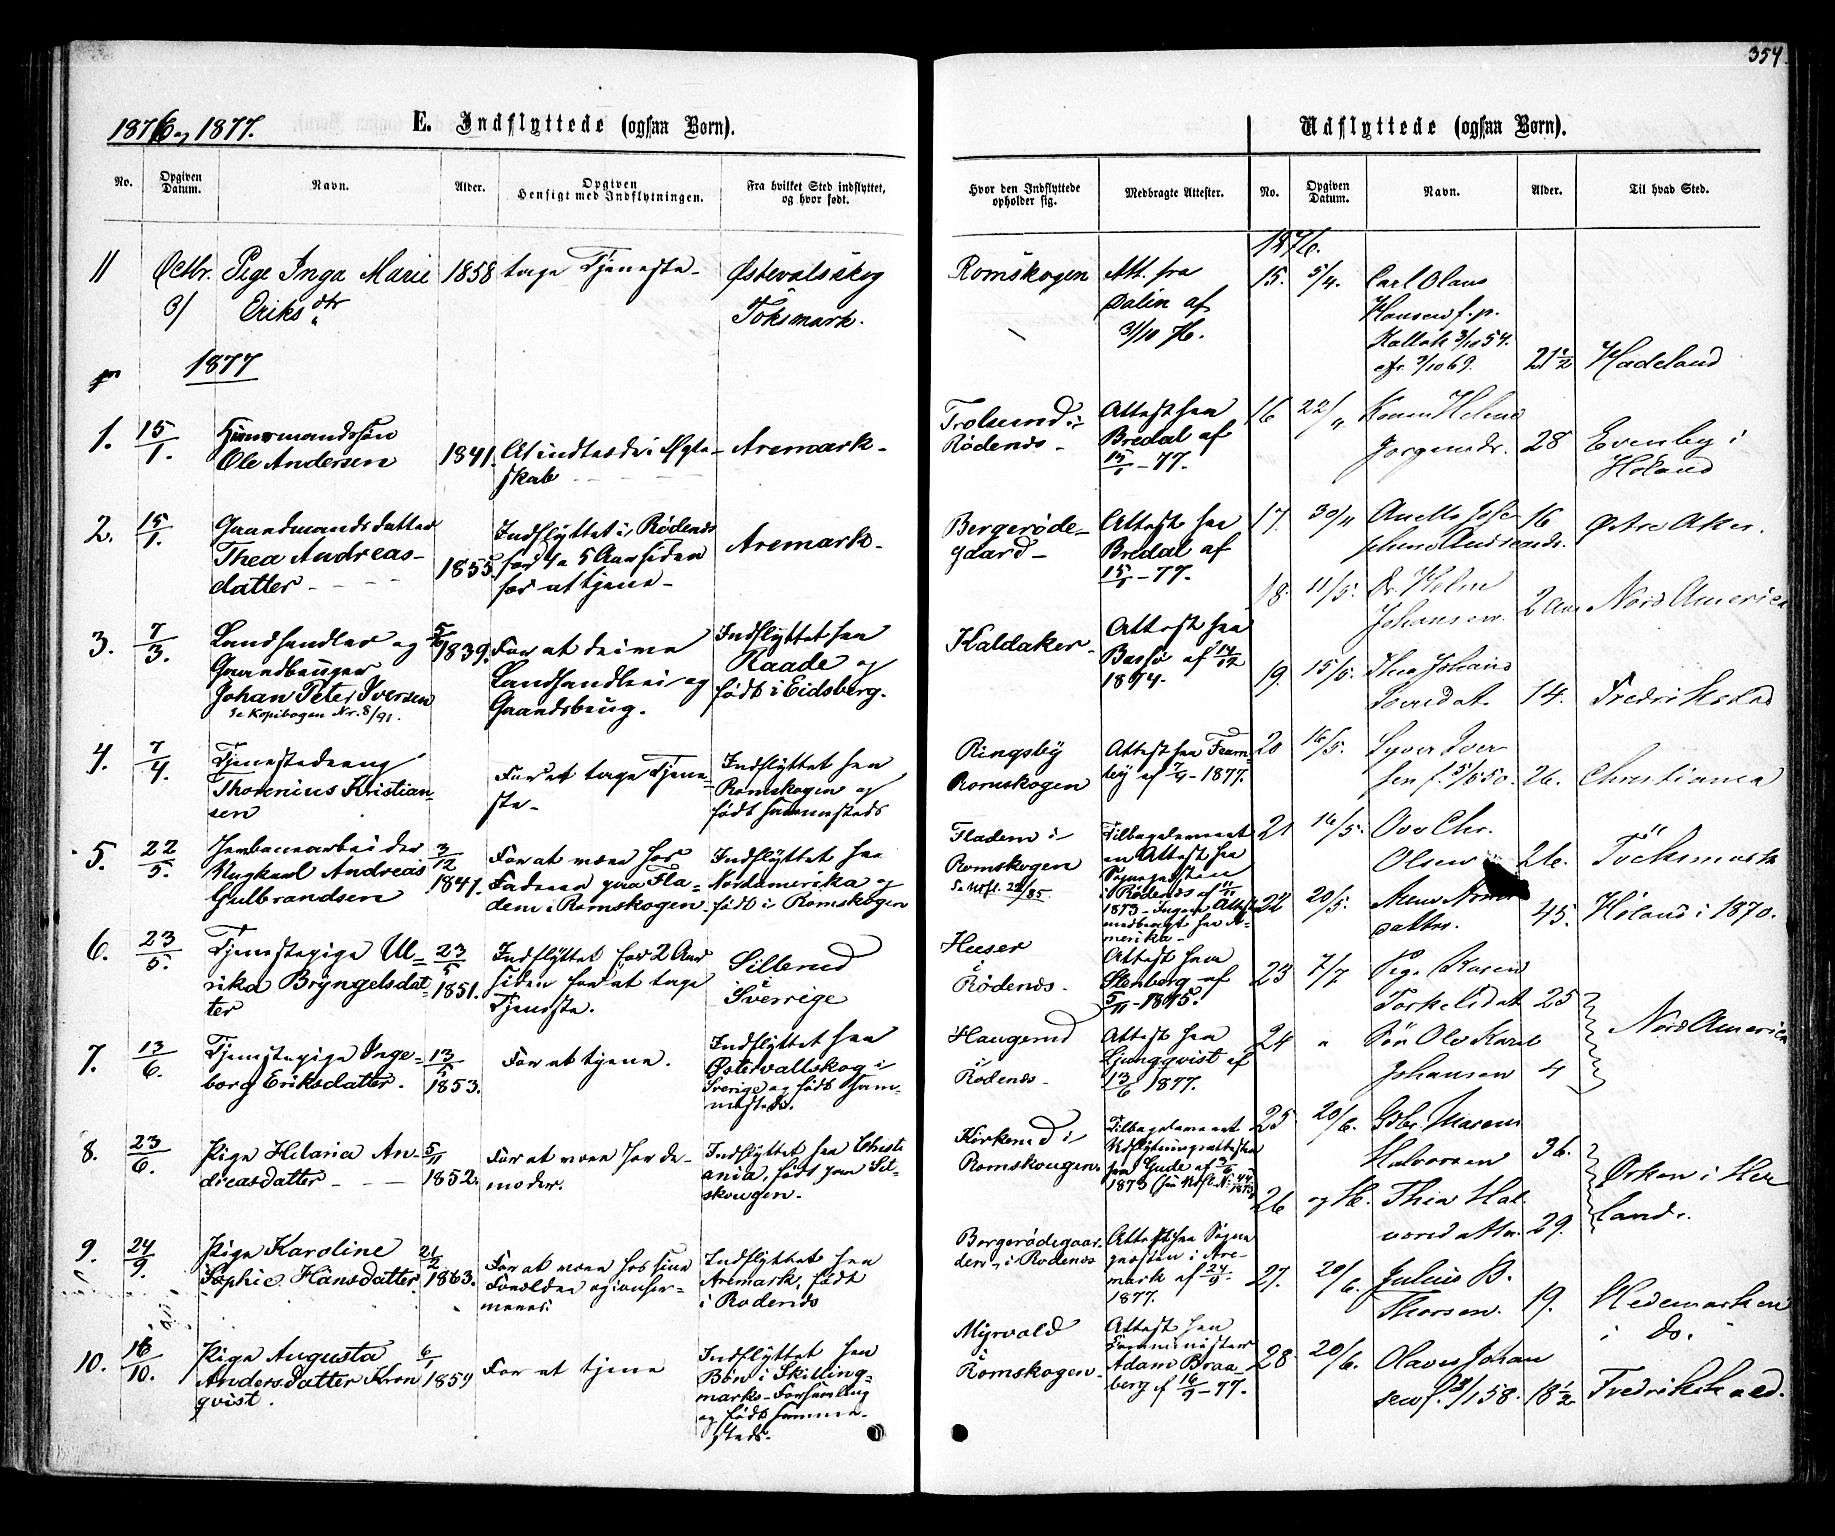 354.
1876 og 1877.
E. Indflyttede (ogsaa Børn).
No.
Opgiven
Datum.
Navn.
Alder.
Opgiven
Hensigt med Indflytningen.
Fra hvilket Sted indflyttet,
og hvor født.
11
Octbr.
Pige Inga Marie
Eriksdtr
1858
tage Tjeneste
Östevalsskog
Töksmark.
1877
1.
15/1.
Ole Andersen
1841.
At indtræde i Ægte-
skab
Aremark
2.
15/1.
Gaardmandsdatter
Thea Andreas-
datter
1855.
Indflyttet i Rødenes
for 4 a 5 Aar siden
for at tjene
Aremark
3.
7/3.
Landhandler og
Gaardbruger
Johan Peter Iversen
Se Kopibogen Nr. 8/91.
1839.
For at drive
Landhandleri og
Gaardsbrug.
Indflyttet fra
Raade og
født i Eidsberg.
4.
7/4.
Tjenestedreng
Thorenius Kristian-
sen
For at tage Tjene-
ste
Indflyttet fra
Romskogen og
født sammesteds
5.
22/5.
Jernbanearbeider
Ungkarl Andreas
Gulbrandsen
3/12
1847.
For at være hos
Faderen paa Fla-
dem i Romskogen
Indflyttet fra
Nordamerika og
født i Romskogen
6.
23/5.
Tjenestepige Ul-
rika Bryngelsdat-
ter
23/5
1851.
Indflyttet for 2 Aar
siden for at tage
Tjeneste.
Sillerud
i
Sverrige
7.
13/6.
Tjenstepige Inge-
borg Eriksdatter.
13/5
1853.
For at tjene.
Indflyttet fra
Østervallskog i
Sverige og født sam-
mesteds.
8.
23/6.
Pige Hilaria An-
dreasdatter
5/11
1852.
For at være hos de-
moder.
Indflyttet fra Christi
ania, født paa
skougen.
9.
24/9.
Pige Karoline
Sophie Hansdatter
21/2
1863.
For at være hos sine
Forældre
Indflyttet fra
Aremark, født
i Rødenes
10.
16/10.
Pige Augusta
Andersdatter Kron
qvist.
6/1
1859
For at tjene
Indflyttet fra
Bön i Skilling-
marks Forsamling
og født samme-
steds.
Udflyttede (ogsaa Børn).
Hvor den Indflyttede
opholder sig.
Medbragte Attester.
No.
Opgiven
Datum.
Navn.
Alder.
Til hvad Sted.
Romskogen
Att. fra
Dalin af
31/10 76.
Trolsund i
Rødenes
Attest fra
Bredal af
15/1-77.
Bergerøde-
gaard
Attest fra
Bredal af
15/1-77.
Kaldaker
Attest fra
Bassø af 14/12
1874.
Ringsby
Romskogen
Attest fra
af 7/4-1877.
Fladem i
Romskogen
Tilbageleveret
en Attest fra
Sognepresten
i Rødenes af
1873 - Ingen Attest
medbragt fra A-
merika
Huser
i
Rødenes
Attest fra
Stenborg af
5/11-1875.
Haugerud
i
Rødenes
Attest fra
Ljungqvist af
13/6 1877.
Kirkerud i
Romskougen.
Tilbageleveret
Udflytningsattesten
fra Gude af
1873
Bergerødegaar-
den, i Rødenes
Attest fra Sogne
presten i Are-
mark af 24/9.
1877.
Myrvold
i
Romskogen
Attest fra
Komminister
Adam Braa
berg af 16/9-77.
1876.
15.
5/4.
Carl Olaus
Hansen f. p.
Kallak 3/10 54.
cfr. 3/10 69.
21 1/2
Hadeland
16
22/"
Karen Helene
Jørgensdr.
28
Evenby i
Høland
17.
30/"
Anette Jose
phine Andreasdr.
16
Østre Aker.
18.
11/5.
Johansen.
2 Aar
Nord America
19.
15/5.
Thea Johans
14.
Fredrikstad
20
16/5.
Syver Iver
sen f. 5/5 50.
26.
Christiania
21
16/5.
Ove Chr.
Olsen
26.
Töcksmark
22
20/5.
datter.
45.
Høland i 1870.
23
7/7
Pige Karen
Torkelsdat
25
Nord America
24
"
Søn Ole Karel
Johansen
4
25
20/6.
Gdbr. Marcus
Halvorsen
36.
26
og H.
Thea Hal
vorsdatter.
29.
Ørken i Her
land.
27.
20/6.
Julius B.
Thorsen.
19.
Hedemarken
i do.
28
20/6.
Olaves Johan
sen f. 29/1 58.
18 1/2
Fredrikshald.